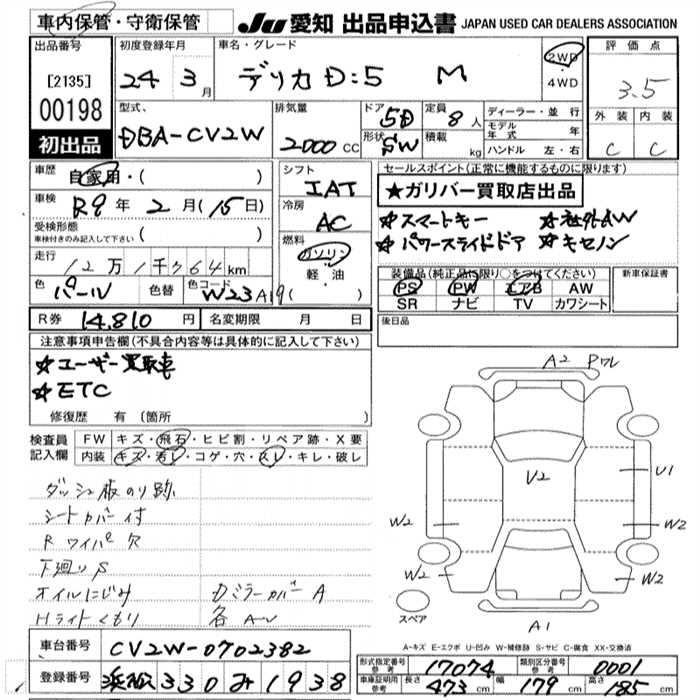 車内保管・守衛保管 JU 愛知 出品申込書 JAPAN USED CAR DEALERS ASSOCIATION
出品番号 初度登録年月 車名・グレード 評価点
[2135] 24 年 3 月 デリカD:5 M 2WD・4WD 3.5
00198 型式 排気量 ドア 5D 定員 8人 ディーラー・並行 外装 内装
初出品 DBA-CV2W 2000 CC 形状 SW 積載 kg モデル年式 年 C C
ハンドル 左・右
車歴 自家用・( ) シフト セールスポイント(正常に機能するものに限ります)
車検 R9 年 2 月(15日) IAT ★ガリバー買取店出品
受検形態 ( ) 冷房 ☆スマートキー ☆社外AW
車検付きのみ記入して下さい AC ☆パワースライドドア ☆キセノン
走行 12万1千764km 燃料 ガソリン 軽・油 ( )
装備品(純正品に限り○をつけてください) 新車保証書
色 パール 色替 色コード W23A19 PS PW エアB AW
SR ナビ TV カワシート
R券 14,810 円 名変期限 月 日 後日品
注意事項申告欄(不具合内容等は具体的に記入して下さい)
☆ユーザー買取車
☆ETC
修復歴 有 (箇所 )
検査員 FW キズ・飛石・ヒビ割・リペア跡・X要
記入欄 内装 キズ・汚レ・コゲ・穴・スレ・キレ・破レ
ダッシュ板のり跡
シートカバー付
Rワイパー欠
下廻りS
オイルにじみ DミラーカバーA
Hライトくもり 各AU
A2 Pワレ
V2 U1
W2 W2
W2 W2
スペア A1
A-キズ E-エクボ U-凹み W-補修跡 S-サビ C-腐食 XX-交換済
車台番号 CV2W-0702382
形式指定番号 参考 17074 類別区分番号 参考 0001
登録番号 浜松 330 み 1938
車庫証明用 参考 長さ 473 cm 幅 179 cm 高さ 185 cm